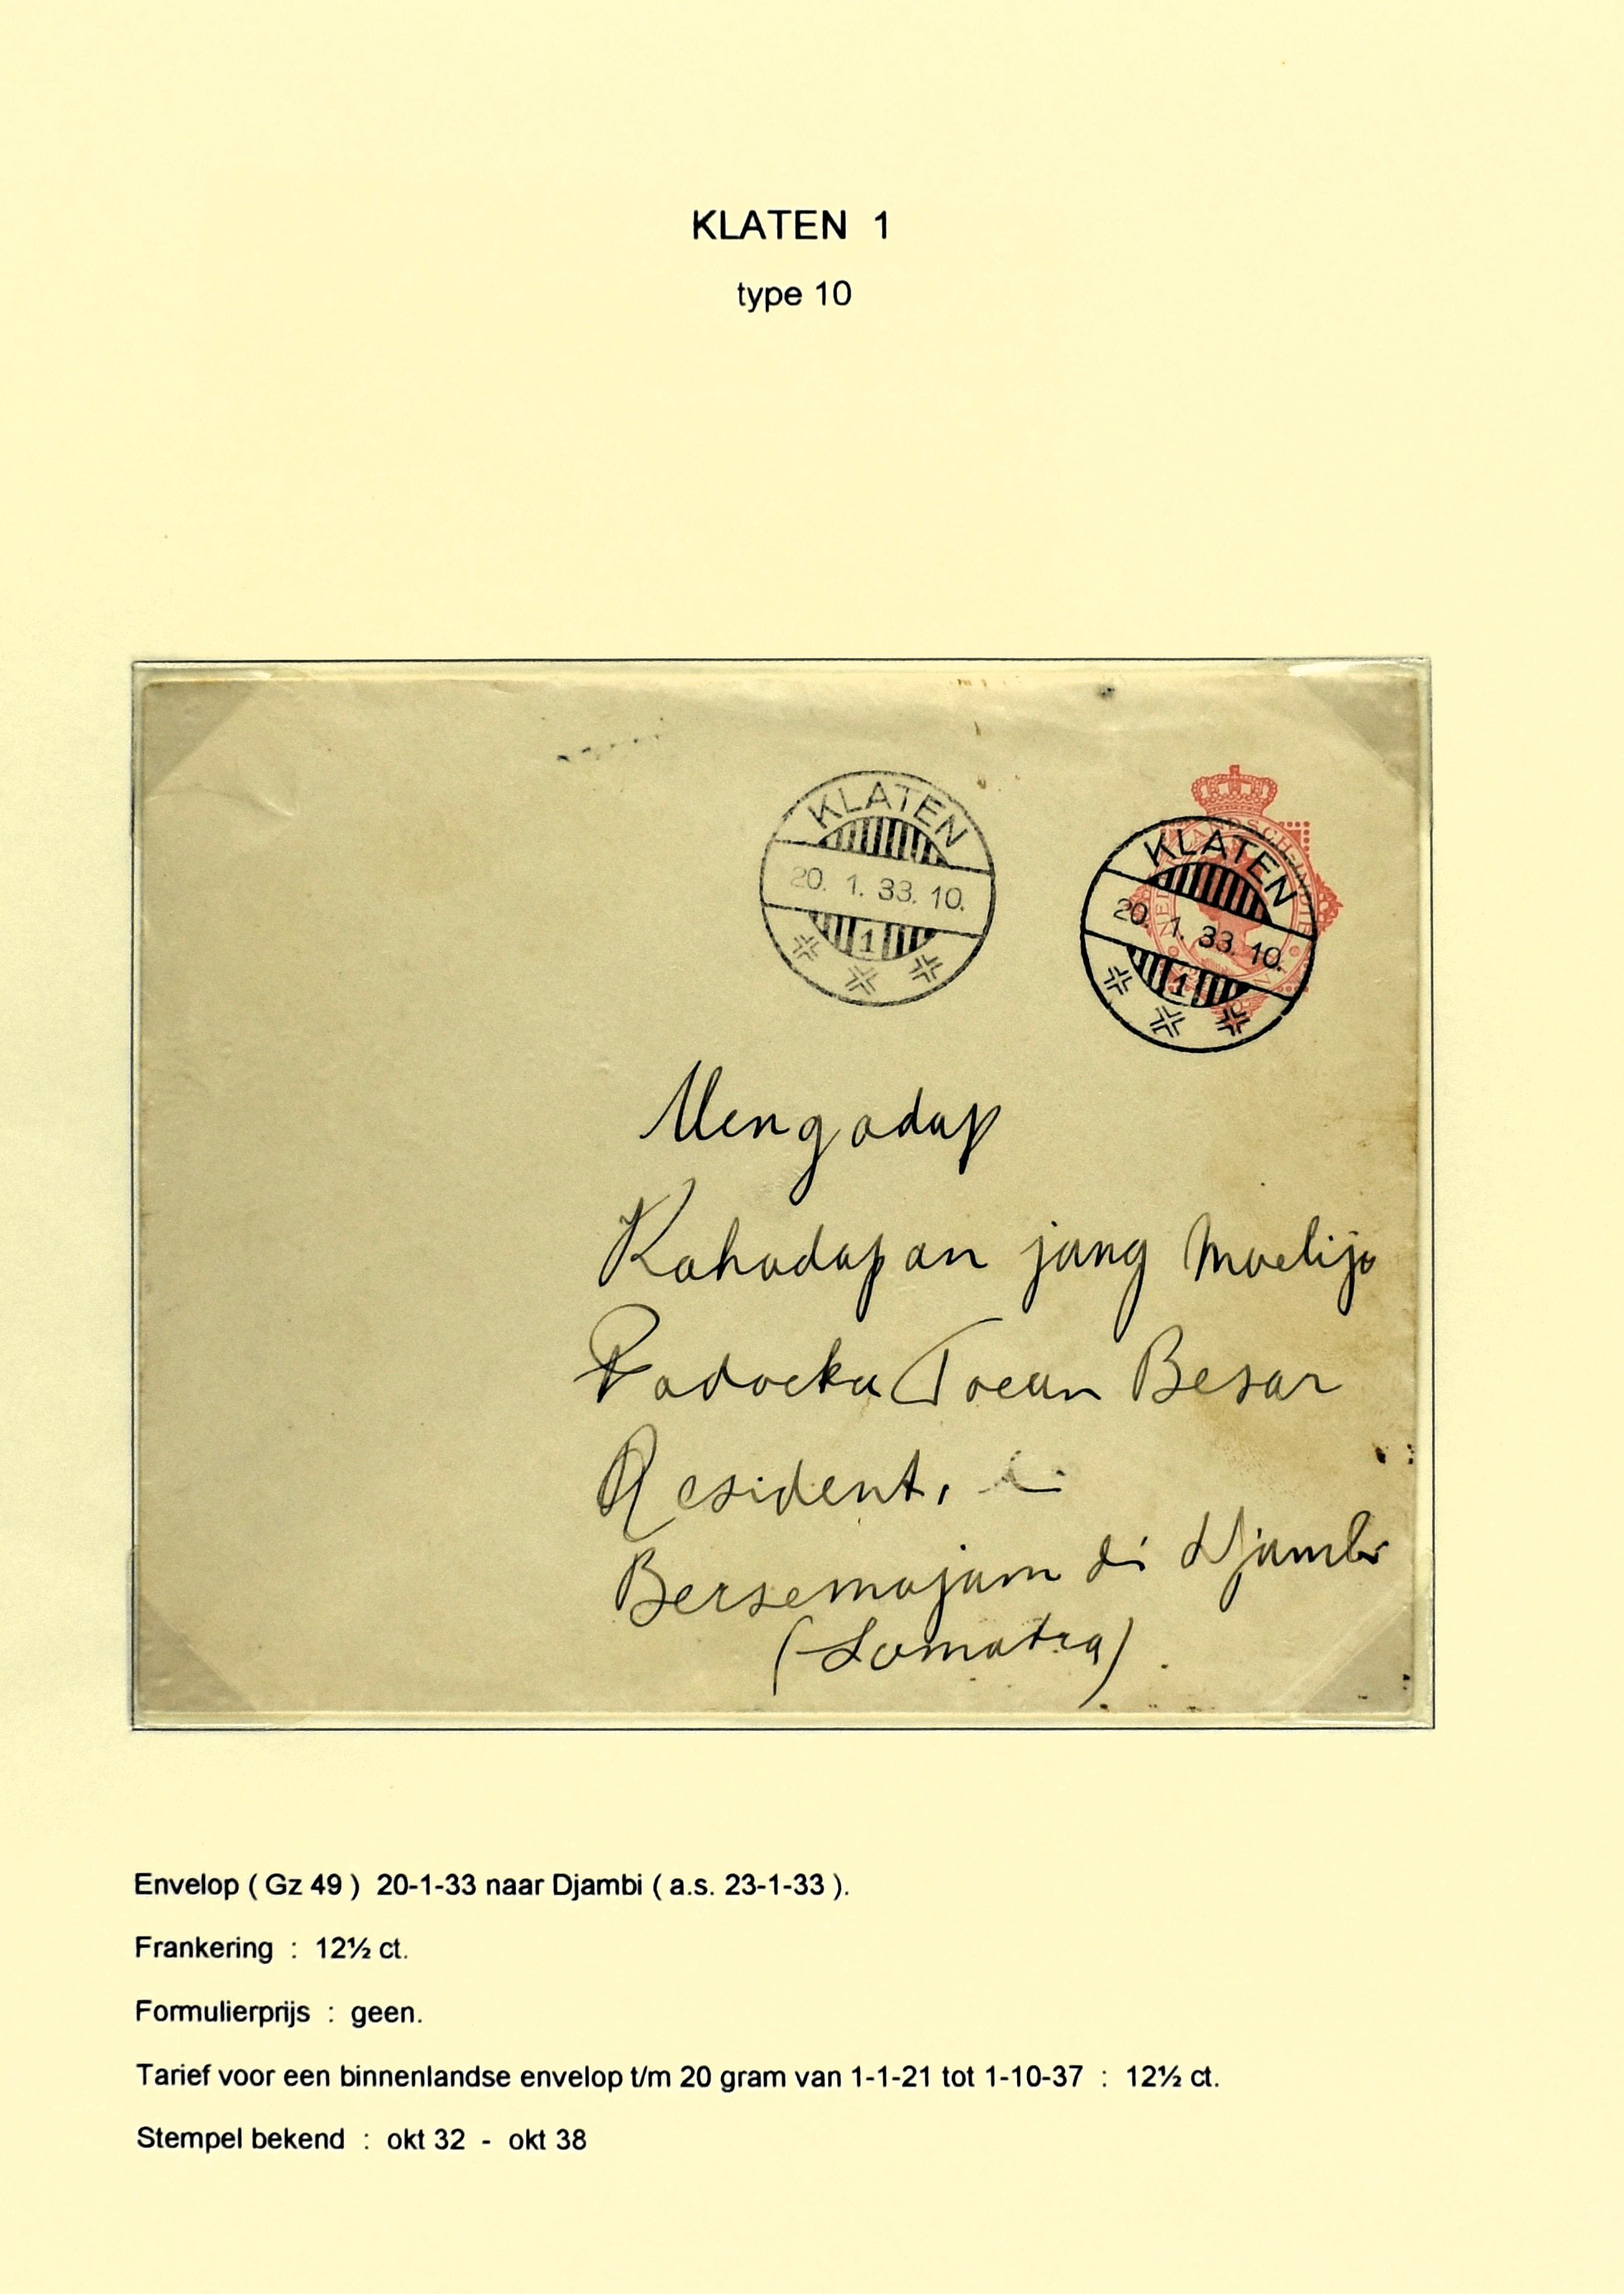 KLATEN 1
type 10
KLATEN
20. 1. 33. 10.
1
KLATEN
20. 1. 33. 10.
1
Mengadap
Kahadapan jang Moelija
Padoeka Toean Besar
Resident,
Bersemajam di Djambi
(Somatra).
Envelop ( Gz 49 ) 20-1-33 naar Djambi ( a.s. 23-1-33 ).
Frankering : 12½ ct.
Formulierprijs : geen.
Tarief voor een binnenlandse envelop t/m 20 gram van 1-1-21 tot 1-10-37 : 12½ ct.
Stempel bekend : okt 32 - okt 38